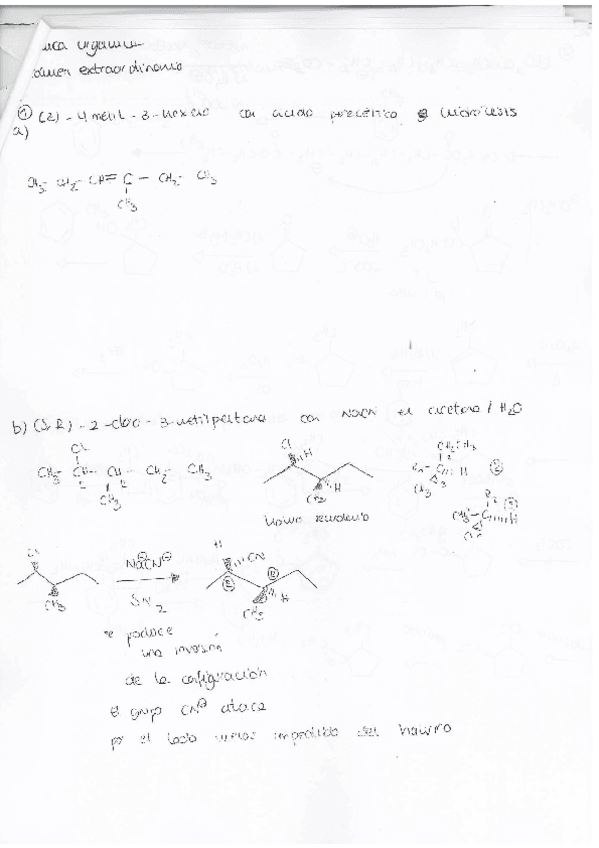 extraordinario
① (Z) - 4 metil - 3 - hexeno con acido peracético e hidrólisis
a)
CH3- CH2- CH= C - CH2- CH3
CH3
b) (S,R) - 2 - cloro - 3 - metilpentano con NaCN en acetona / H2O
Cl
CH3- CH - CH - CH2 - CH3
CH3
Cl H
H
CH3
CH2CH3
CH3
H
CH3
NaCN
SN2
H
CN
R
R
CH3 H
se produce
una inversión
de la configuración
el grupo CN⊖ ataca
por el lado menos impedido del